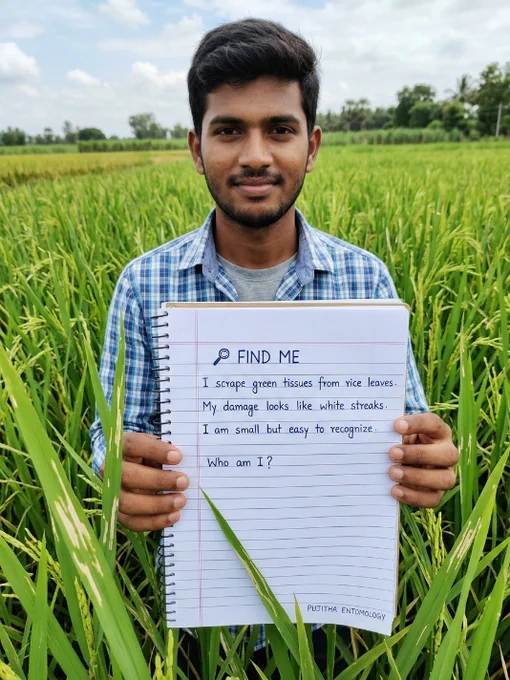 FIND ME
I scrape green tissues from rice leaves.
My damage looks like white streaks.
I am small but easy to recognize.
Who am I?
PUJITHA ENTOMOLOGY